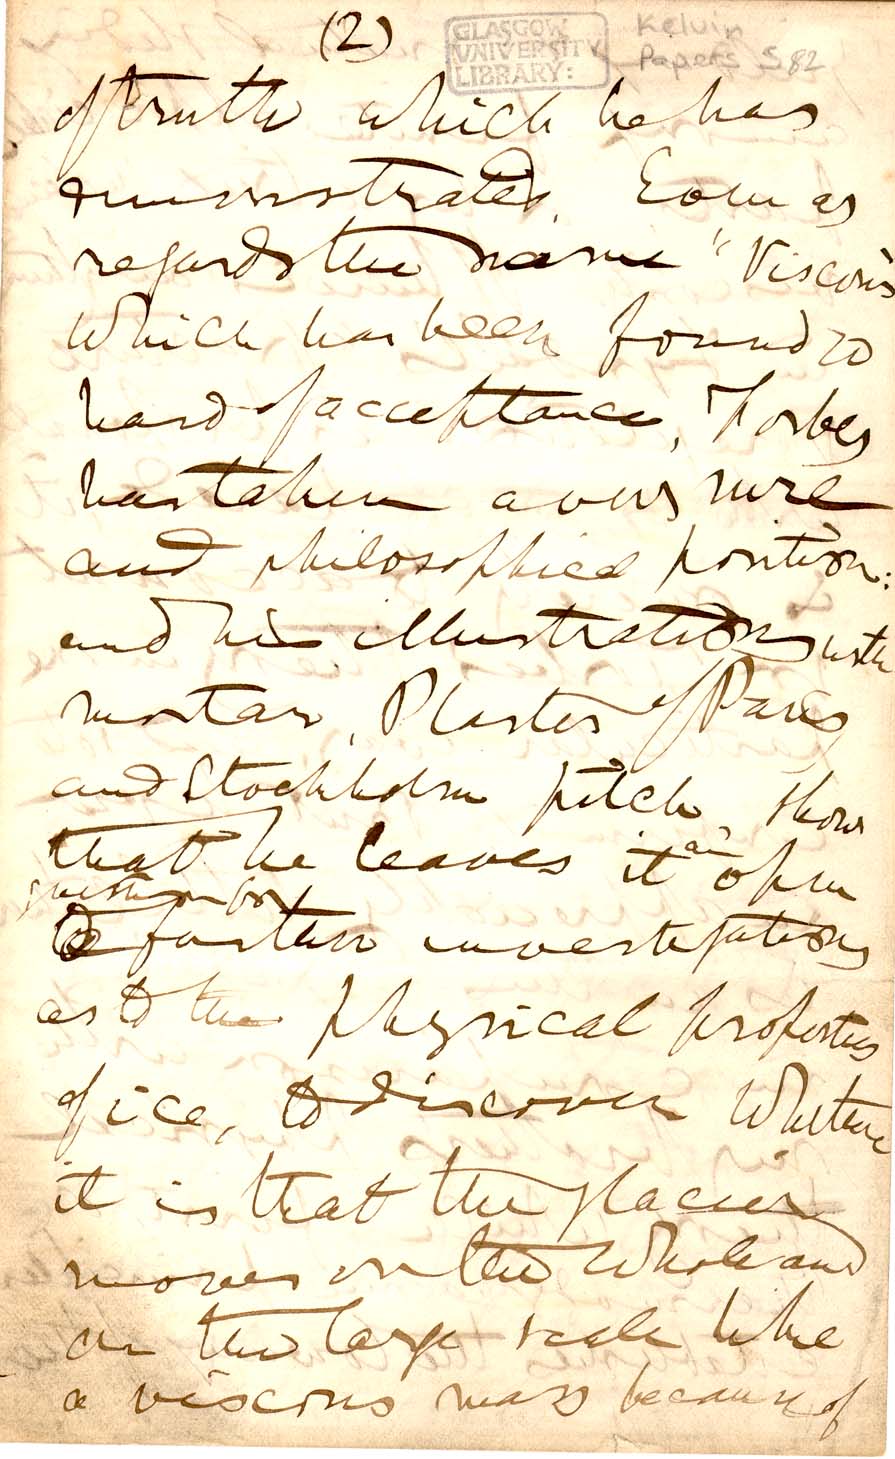 (2)
GLASGOW
UNIVERSITY
LIBRARY:
Kelvin
Papers S 82
of truth which he has
demonstrated. Even as
regards the name "Viscous
which has been found so
hard of acceptance, Forbes
has taken a very sure
and philosophical position:
and his illustrations with
mortar, Plaster of Paris
and Stockholm pitch, show
that he leaves it an open
question for
to farther investigations
as to the physical properties
of ice, to discover whether
it is that the glacier
moves on the whole and
on the large scale like
a viscous mass because of